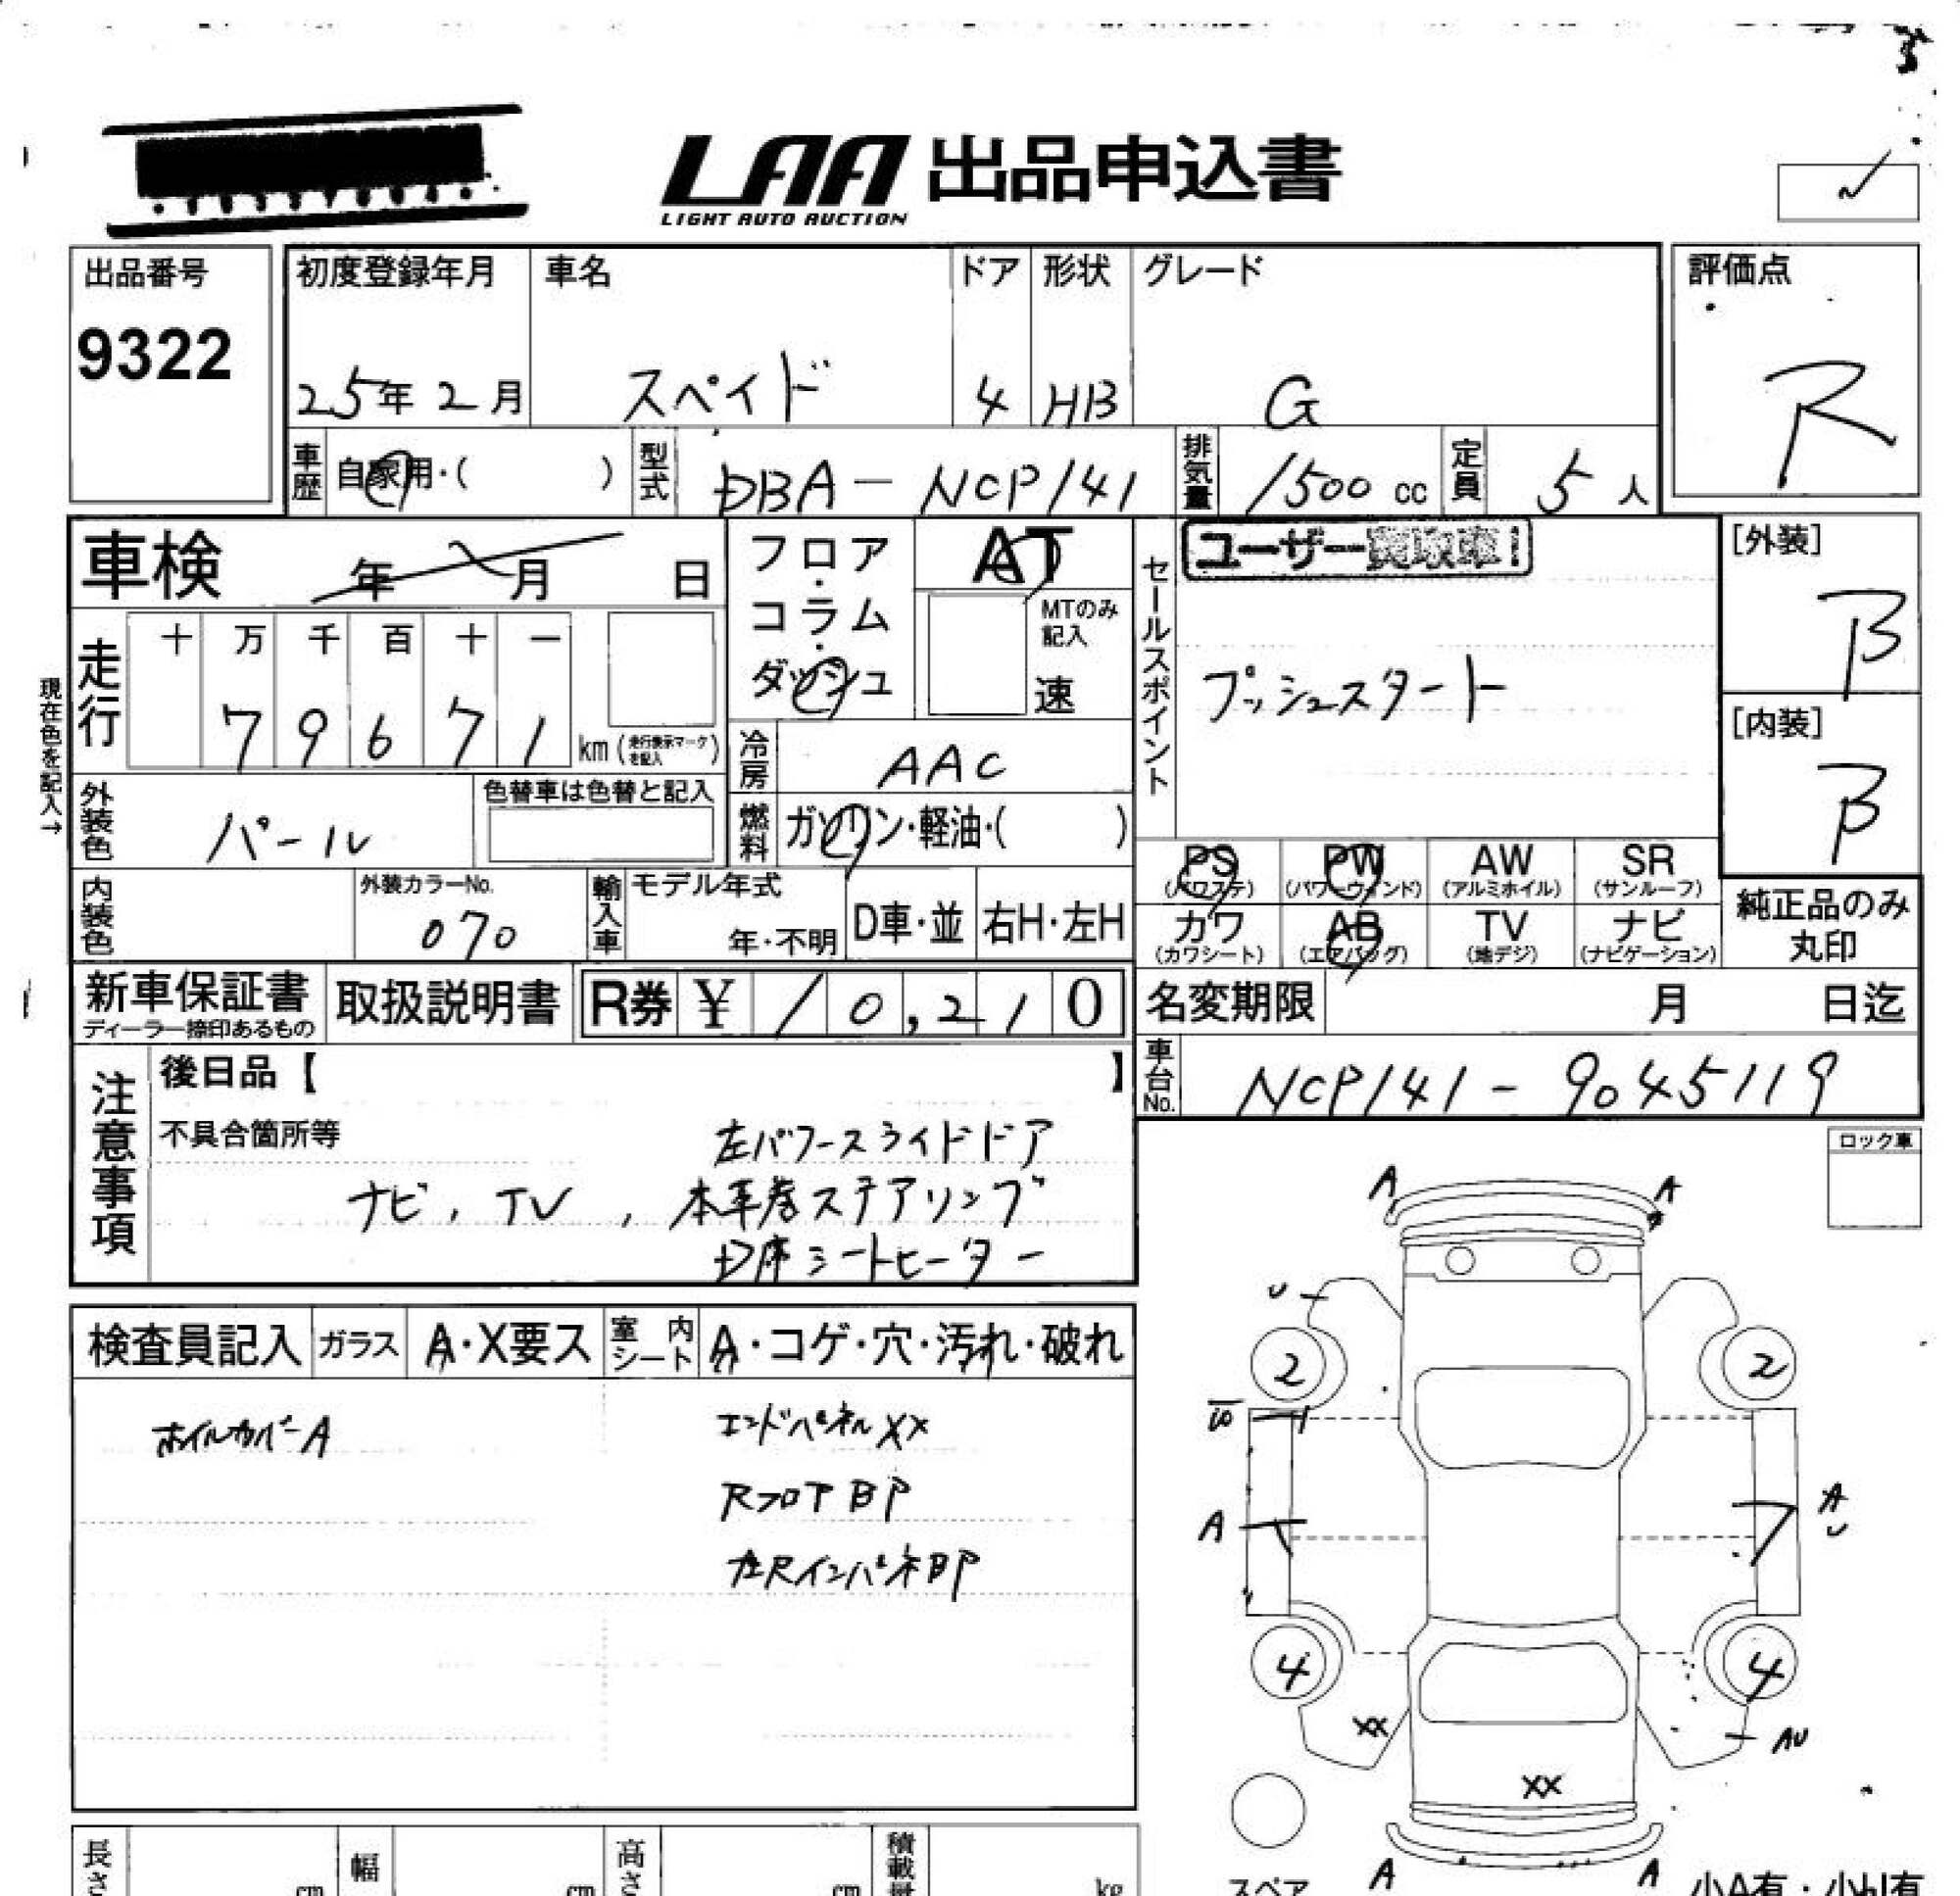 LAA 出品申込書
LIGHT AUTO AUCTION
出品番号
9322
初度登録年月
25年 2月
車名
スペイド
ドア
4
形状
HB
グレード
G
評価点
R
車歴 自家用・( )
型式 DBA-NCP141
排気量 1500 cc
定員 5人
車検 年 月 日
フロア・コラム・ダッシュ
AT
MTのみ記入
速
セールスポイント
ユーザー買取車!
プッシュスタート
[外装]
B
[内装]
B
現在色を記入→
走行
十 万 千 百 十 一
7 9 6 7 1 km (走行表示マークを記入)
冷房 AAC
外装色 パール
色替車は色替と記入
燃料 ガソリン・軽油・( )
PS (パワステ)
PW (パワーウィンド)
AW (アルミホイル)
SR (サンルーフ)
カワ (カワシート)
AB (エアバッグ)
TV (地デジ)
ナビ (ナビゲーション)
純正品のみ丸印
内装色
外装カラーNo.
070
輸入車
モデル年式
年・不明
D車・並
右H・左H
新車保証書
ディーラー捺印あるもの
取扱説明書
R券 ¥ 10,210
名変期限 月 日迄
車台No. NCP141-9045119
注意事項
後日品【 】
不具合箇所等
左パワースライドドア
ナビ, TV, 本革巻ステアリング
D席シートヒーター
ロック車
検査員記入
ガラス
A・X要ス
室内シート
A・コゲ・穴・汚れ・破れ
ホイルカバーA
エンドパネルXX
RフロアBP
左RインパネBP
A A
U
2 2
A A
U
4 4
XX
AU
XX
A A
スペア
小A有・小U有
長さ cm
幅 cm
高さ cm
積載量 kg